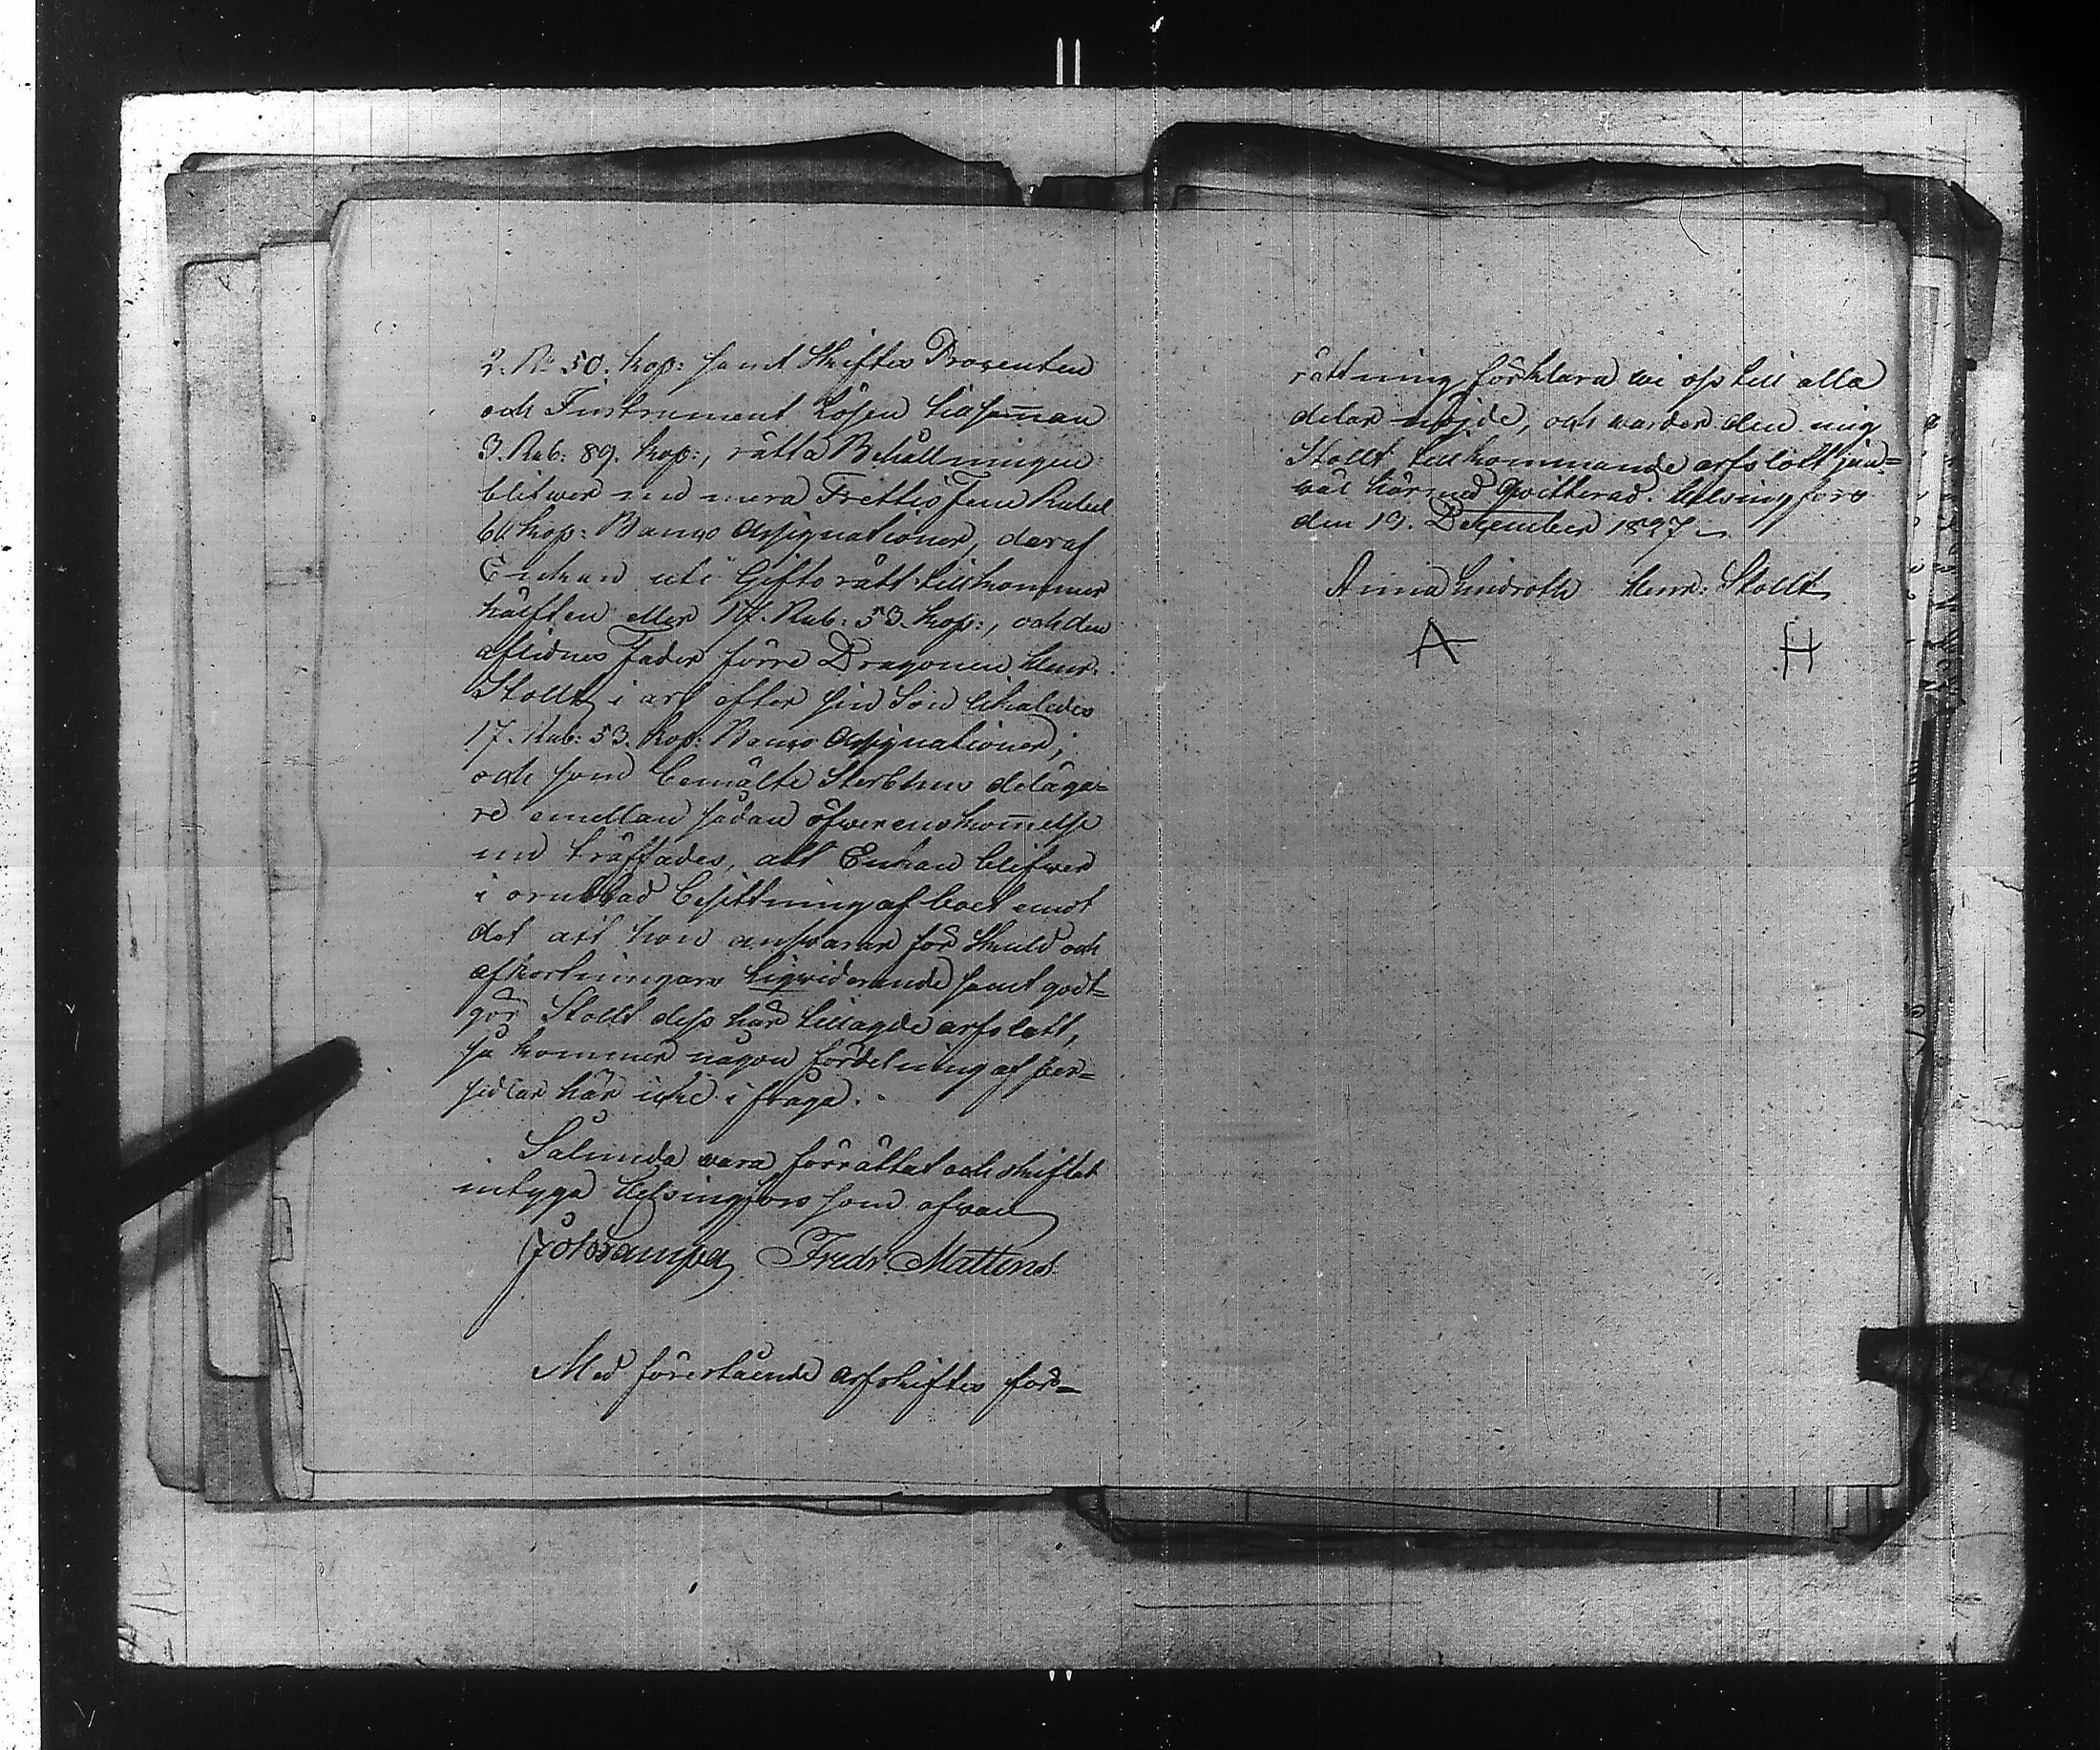 2. R. 50. kop: samt Skiftes Procenten
och Instrument Lösen tillsam̅an
3. Rub: 89. kop:, rätta Behållningen
blifwer nu mera Trettio Fem Rubel
6 kop: Banco Assignationer, deraf
Enkan uti Giftorätt tillkommer
hälften eller 17. Rub: 53. kop:, och den
aflidnes Fader förre Dragonen Henr:
Stollt i arf efter sin Son likaledes
17. Rub: 53. kop: Banco Assignationer;
och som bemälte Sterbhus deläga=
re emellan sådan öfwerenskom̅else
nu träffades, att Enkan blifwer
i orubbad besittning af boet emot
det att hon answarar för Skuld och
afkortningars liqviderande samt godt=
gör Stollt dess här tillagde arfslott,
så kommer någon fördelning af per=
sedlar här icke i fråga.
Sålunda vara förrättat och skiftat
intyga Helsingfors som ofwan
Joh Krampa Fredr. Mattens
Med förestående arfskiftes för=
rättning förklara wi oss till alla
delar nöjde, och warder den mig
Stollt tillkommande arfslott jem=
väl härmed qwitterad. Helsingfors
den 19. December 1827
Anna Lindroth Henr: Stollt
A H